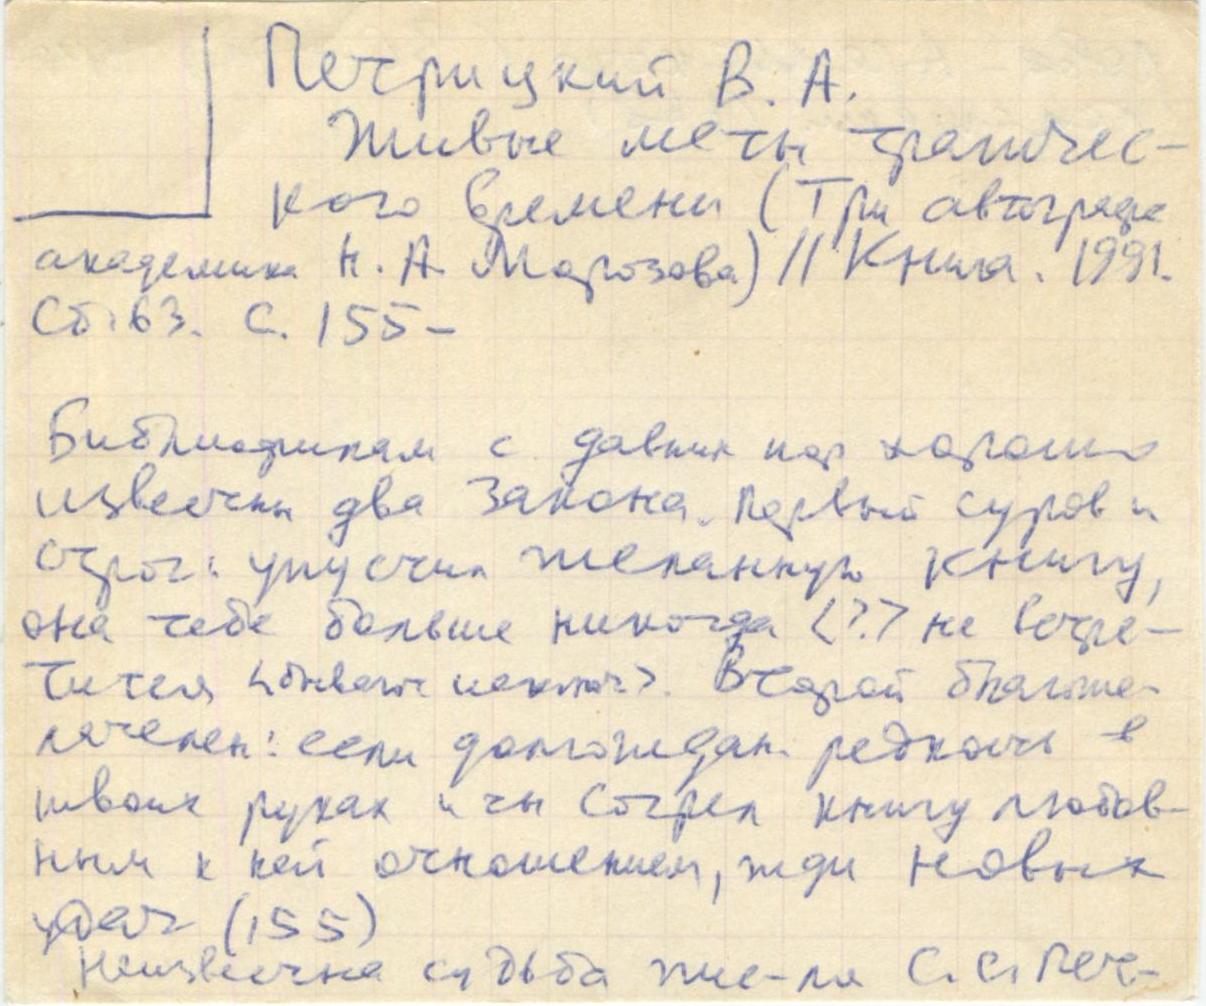 Петрицкий В. А.
Живые меты трагичес-
кого времени (Три автографа
академика Н. А. Морозова) // Книга. 1991.
Сб. 63. С. 155-
Библиофилам с давних пор хорошо
известны два закона. Первый суров и
строг: упустил желанную книгу,
она тебе больше никогда <?> не встре-
тится <бывают исключ>. Второй благоже-
лателен: если долгождан. редкость в
твоих руках и ты согрел книгу любов-
ным к ней отношением, жди новых
удач (155)
Неизвестна судьба жи-ля С. С. Печ-